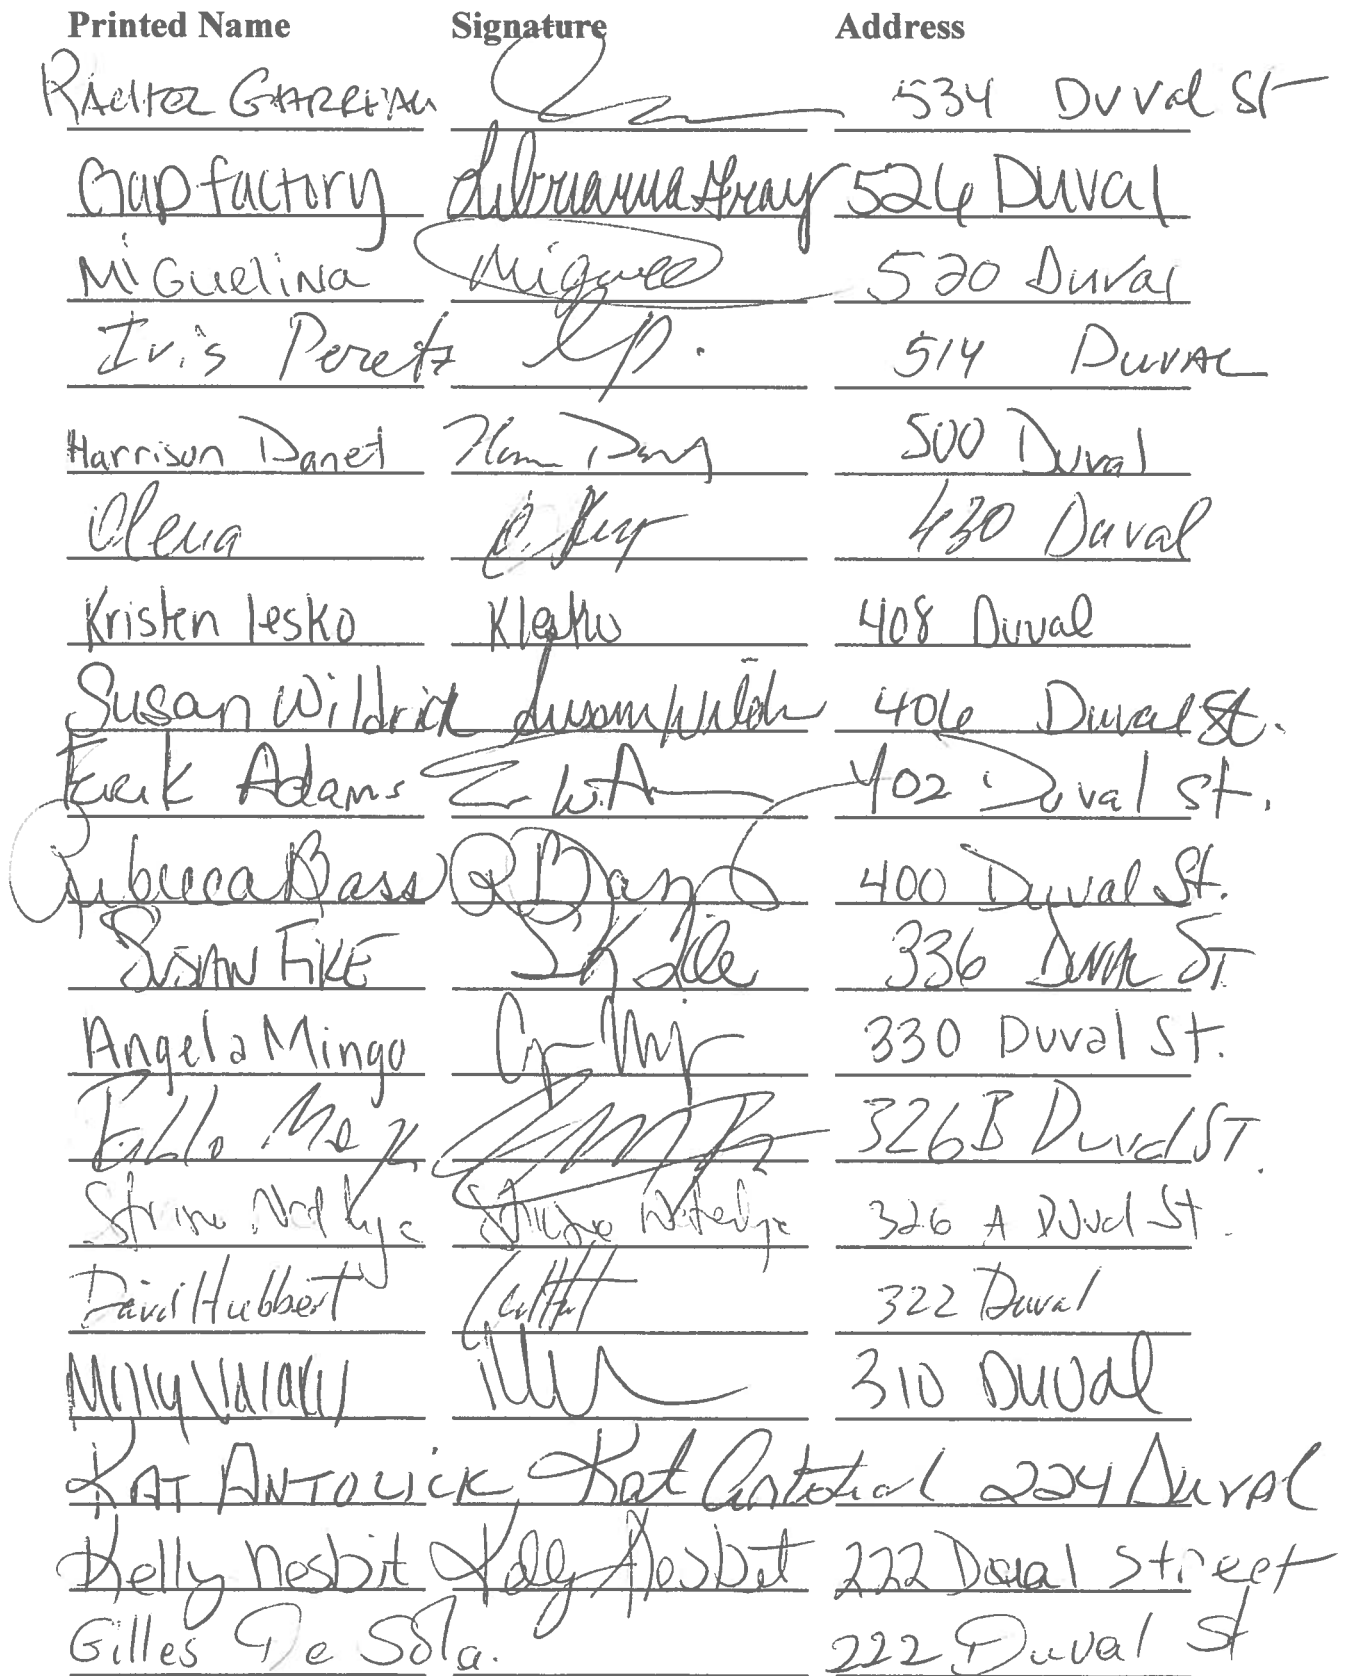 Printed Name Signature Address
Rachel Garreau 534 Duval St
Gap factory Labrianna Gray 526 Duval
MiGuelina Miguel 520 Duval
Iris Peretz I.P. 514 Duval
Harrison Danet 500 Duval
Olena 430 Duval
Kristen lesko Klesko 408 Duval
Susan Wildrick Susan Wildr 406 Duval St.
Erik Adams 402 Duval St.
Rebecca Bass R Bass 400 Duval St.
Susan Fike S K Fike 336 Duval St
Angela Mingo 330 Duval St.
326 B Duval ST.
326 A Duval St.
David Hubbert 322 Duval
Milly 310 Duval
Kat Antolick Kat Antolick 224 Duval
Kelly Nesbit Kelly Nesbit 222 Duval Street
Gilles De Sola. 222 Duval St